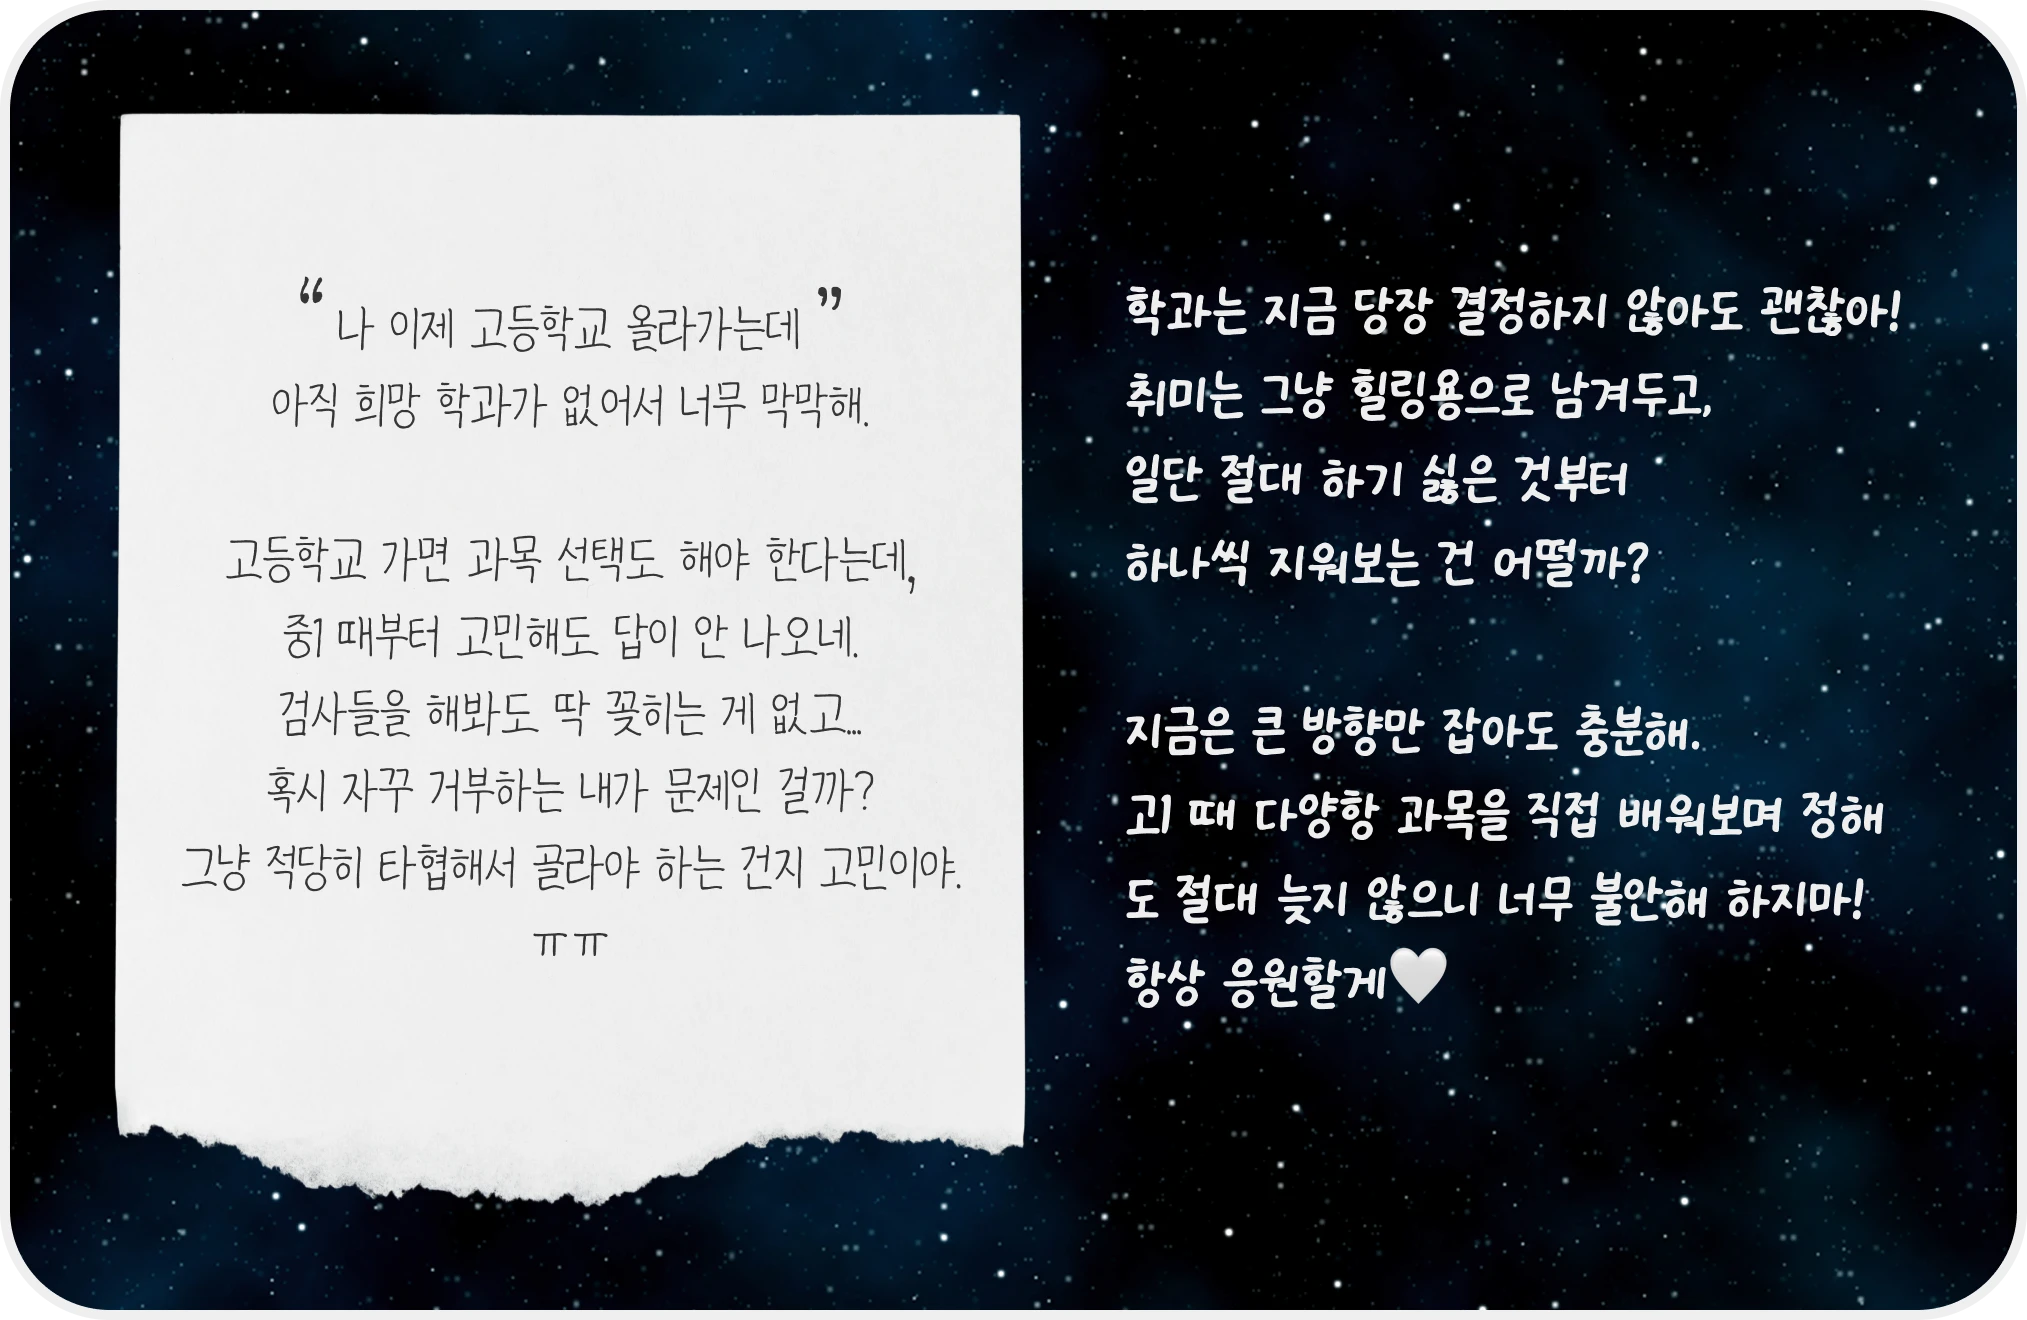 “ 나 이제 고등학교 올라가는데 ”
아직 희망 학과가 없어서 너무 막막해.
고등학교 가면 과목 선택도 해야 한다는데,
중1 때부터 고민해도 답이 안 나오네.
검사들을 해봐도 딱 꽂히는 게 없고...
혹시 자꾸 거부하는 내가 문제인 걸까?
그냥 적당히 타협해서 골라야 하는 건지 고민이야.
ㅠㅠ
학과는 지금 당장 결정하지 않아도 괜찮아!
취미는 그냥 힐링용으로 남겨두고,
일단 절대 하기 싫은 것부터
하나씩 지워보는 건 어떨까?
지금은 큰 방향만 잡아도 충분해.
고1 때 다양항 과목을 직접 배워보며 정해
도 절대 늦지 않으니 너무 불안해 하지마!
항상 응원할게🤍